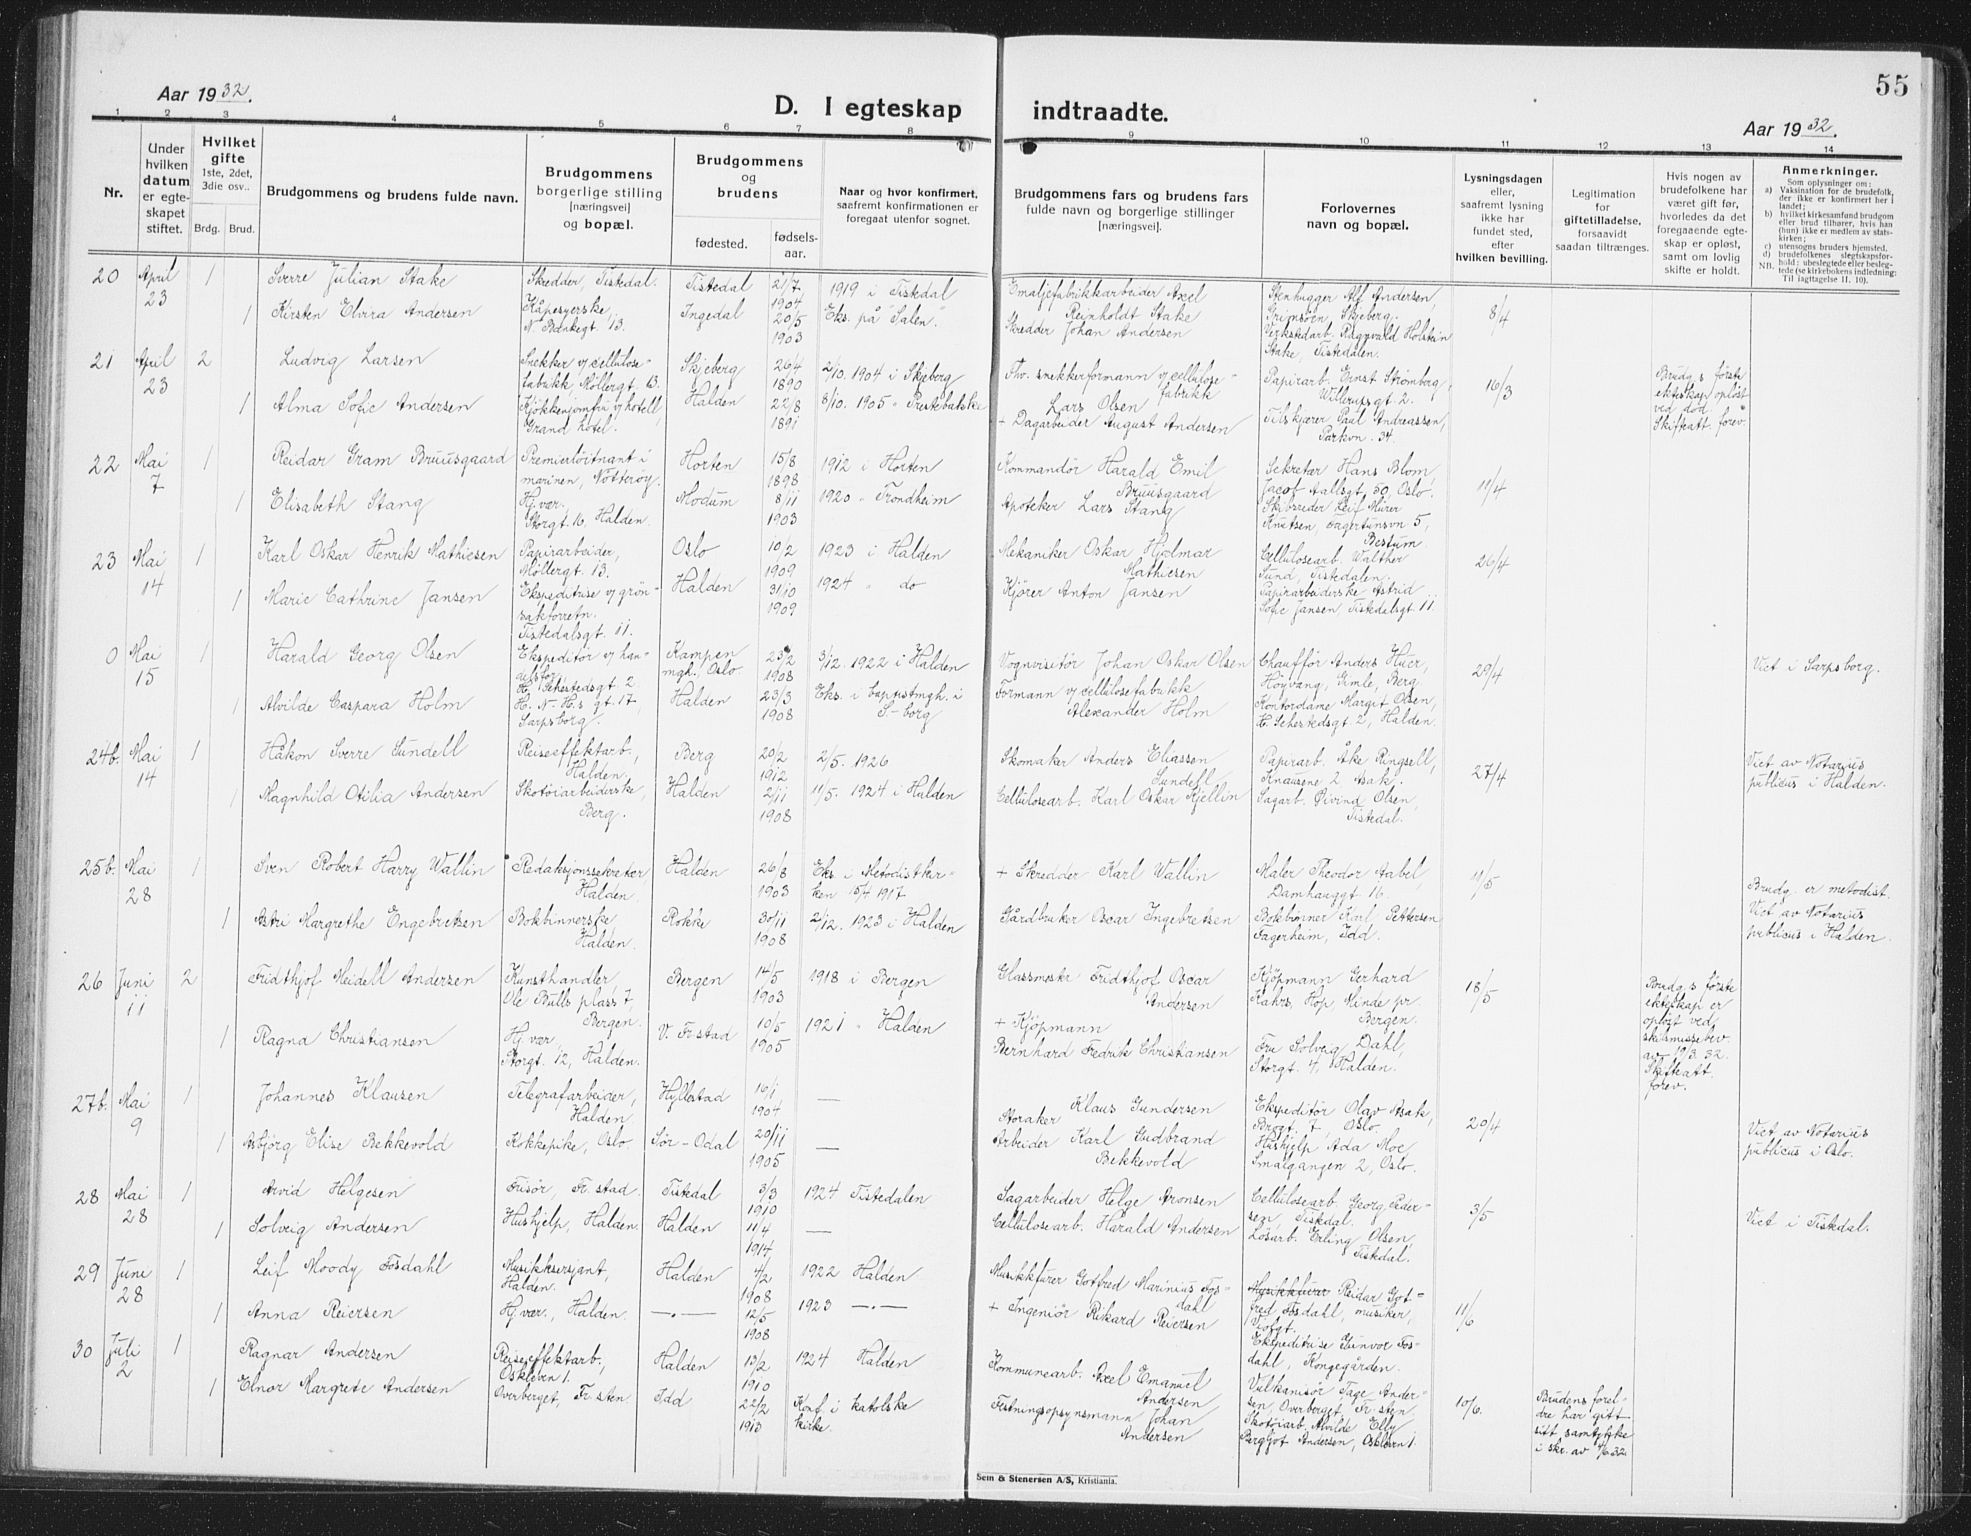 55
Aar 1932.
D. I egteskap indtraadte.
Aar 1932.
1 2 3 4 5 6 7 8 9 10 11 12 13 14
Nr.
Under hvilken datum er egteskapet stiftet.
Hvilket gifte 1ste, 2det, 3die osv..
Brdg. Brud.
Brudgommens og brudens fulde navn.
Brudgommens borgerlige stilling [næringsvei] og bopæl.
Brudgommens og brudens
fødested. fødselsaar.
Naar og hvor konfirmert, saafremt konfirmationen er foregaat utenfor sognet.
Brudgommens fars og brudens fars fulde navn og borgerlige stillinger [næringsvei].
Forlovernes navn og bopæl.
Lysningsdagen eller, saafremt lysning ikke har fundet sted, efter hvilken bevilling.
Legitimation for giftetilladelse, forsaavidt saadan tiltrænges.
Hvis nogen av brudefolkene har været gift før, hvorledes da det foregaaende egteskap er opløst, samt om lovlig skifte er holdt.
Anmerkninger.
Som oplysninger om:
a) Vaksination for de brudefolk, der ikke er konfirmert her i landet;
b) hvilket kirkesamfund brudgom eller brud tilhører, hvis han (hun) ikke er medlem av statskirken;
c) utensogns bruders hjemsted.
d) brudefolkenes slegtskapsforhold: ubeslegtede eller beslegtede (se kirkebokens indledning:
NB. Til iagttagelse II, 10).
20 April 23 1 Sverre Julian Stake Skredder, Tistedal. Tistedal 21/7 1904 1919 i Tistedal Emaljefabrikkarbeider Axel Reinholdt Stake Stenhugger Alf Andersen, Grimsöen, Skjeberg. 8/4
1 Kirsten Elvira Andersen Kåpesyerske, N. Bankegt. 13. Ingedal 20/5 1903 Eks. på "Salen". Skredder Johan Andersen Verkstedarb. Ragnvald Holstein Stake, Tistedalen.
21 April 23 2 Ludvig Larsen Snekker v/ cellulosefabrikk, Möllergt. 13. Skjeberg 26/4 1890 2/10. 1904 i Skjeberg Fhv. snekkerformann v/ cellulosefabrikk Lars Olsen Papirarb. Ernst Strömberg, Willerupsgt 2. 16/3 Brudg.s første ekteskap opløst ved död. Skifteatt. forev.
1 Alma Sofie Andersen Kjökkenjomfru v/ hotell, Grand hotel. Halden 22/8 1891 8/10. 1905 " Prestebakke + Dagarbeider August Andersen Tilskjærer Paul Andreassen, Parkvn. 34.
22 Mai 7 1 Reidar Gram Bruusgaard Premierlöitnant i marinen, Nötteröy. Horten 15/8 1898 1912 i Horten Kommandör Harald Emil Bruusgaard Sekretær Hans Blom, Jacob Aallsgt. 50, Oslo. 11/4
1 Elisabeth Stang Hj.vær. Storgt. 16, Halden. Modum 8/11 1903 1920 " Trondheim Apoteker Lars Stang Skibsreder Leif Mürer Knutsen, Fagertunvn 5, Bestum.
23 Mai 14 1 Karl Oskar Henrik Mathiesen Papirarbeider, Möllergt. 13. Oslo 10/2 1909 1923 i Halden Mekaniker Oskar Hjalmar Mathiesen Cellulosearb. Walther Tuna, Tistedalen. 26/4
1 Marie Cathrine Jansen Ekspeditrise v/ grönsakforretn. Tistedalsgt. 11. Halden 31/10 1909 1924 " do Kjörer Anton Jansen Papirarbeiderske Astrid Sofie Jansen, Tistedalsgt. 11.
0 Mai 15 1 Harald Georg Olsen Ekspeditör v/ handelsfor. H. Sehestedsgt. 2. Kampen mgh., Oslo. 23/2 1908 3/12. 1922 i Halden Vognvisitör Johan Oskar Olsen Chauffør Anders Huer, Höyvang, Gimle, Berg. 29/4 Viet i Sarpsborg.
1 Alvilde Caspara Holm H. N. H.s gt. 17, Sarpsborg. Halden 23/3 1908 Eks. i baptistmgh. i S-borg Formann v/ cellulosefabrikk Alexander Holm Kontordame Margit Olsen, H. Sehestedsgt 2, Halden.
24b. Mai 14 1 Håkon Sverre Sundell Reiseeffektarb, Halden. Berg 20/2 1912 2/5. 1926 Skomaker Anders Eliassen Sundell Papirarb. Åke Ringsell, Knausene 2 Asak. 27/4 Viet av Notarius publicus i Halden.
1 Magnhild Otilia Andersen Skotöiarbeiderske, Berg. Halden 2/11 1908 11/5. 1924 i Halden Cellulosearb. Karl Oskar Kjellin Sagarb. Øivind Olsen, Tistedal.
25b. Mai 28 1 Sven Robert Harry Wallin Redaksjonssekretær, Halden. Halden 26/8 1903 Eks. i Metodistkirken 15/4 1917 + Skredder Karl Wallin Maler Theodor Aabel, Damhauggt 16. 11/5 Brudg. er metodist. Viet av Notarius publicus i Halden.
1 Astri Margrethe Engebretsen Bokbinnerske, Halden. Rokke 30/11 1908 2/12. 1923 i Halden Gårdbruker Oscar Ingebretsen Bokbinner Karl Pettersen Fagerheim, Idd.
26 Juni 11 2 Fridthjof Meidell Andersen Kunsthandler Ole Bulls plass 7, Bergen. Bergen 14/5 1903 1918 i Bergen Glassmester Fridthjof Oscar Andersen Kjöpmann Gerhard Kahrs, Hop, Minde pr. Bergen. 18/5 Brudg.s første ekteskap er opløst ved skilsmissebev. av 19/3. 32. Skifteatt. forev.
1 Ragna Christiansen Hj.vær, Storgt. 12, Halden. V. Fr.stad 10/5 1905 1921 " Halden + Kjöpmann Bernhard Fredrik Christiansen Fru Solveig Dahl, Storgt. 4, Halden.
27b. Mai 9 1 Johannes Klausen Telegrafarbeider, Halden. Hyllestad 16/1 1904 — Storaker Klaus Gundersen Ekspeditör Olav Asak, Brogt. 7, Oslo. 20/4 Viet av Notarius publicus i Oslo.
1 Asbjörg Elise Bekkevold Kokkepike, Oslo. Sör-Odal 20/11 1905 — Arbeider Karl Gudbrand Bekkevold Hushjelp Ada Moe Smalgangen 2, Oslo.
28 Mai 28 1 Arvid Helgesen Frisør, Fr.stad. Tistedal 3/3 1910 1924 Tistedalen Sagarbeider Helge Aronsen Cellulosearb. Georg Pedersen, Tistedal. 3/5 Viet i Tistedal.
1 Solveig Andersen Hushjelp, Halden. Halden 11/4 1914 — Cellulosearb. Harald Andersen Lösarb. Erling Olsen, Tistedal.
29 Juni 28 1 Leif Moody Fosdahl Musikksersjant, Halden. Halden 4/2 1908 1922 Halden Musikkfurer Gotfred Marinius Fosdahl Musikkfurer Reidar Gotfred Fosdahl, musiker, Violgt. 11/6
1 Anna Reiersen Hj.vær., Halden. —"— 12/5 1908 1923 —"— + Ingeniör Rikard Reiersen Ekspeditrise Gunvor Fosdahl, Kongegården.
30 Juli 2 1 Ragnar Andersen Reiseeffektarb., Oskleven 1. Halden 13/2 1910 1924 Halden Kommunearb. Axel Emanuel Andersen, Vulkanisör Tage Andersen, Overberget, Fr.sten 10/6. Brudens foreldre har gitt sitt samtykke i skr. av 7/6 32.
1 Elnor Margrete Andersen Overberget, Fr.sten Idd 22/2 1913 Konf. i katolske kirke. Festningsopsynsmann Johan Andersen Skotöiarb. Alvilde Elly Bergljot Andersen, Oskleven 1.
Sem & Stenersen A/S, Kristiania.